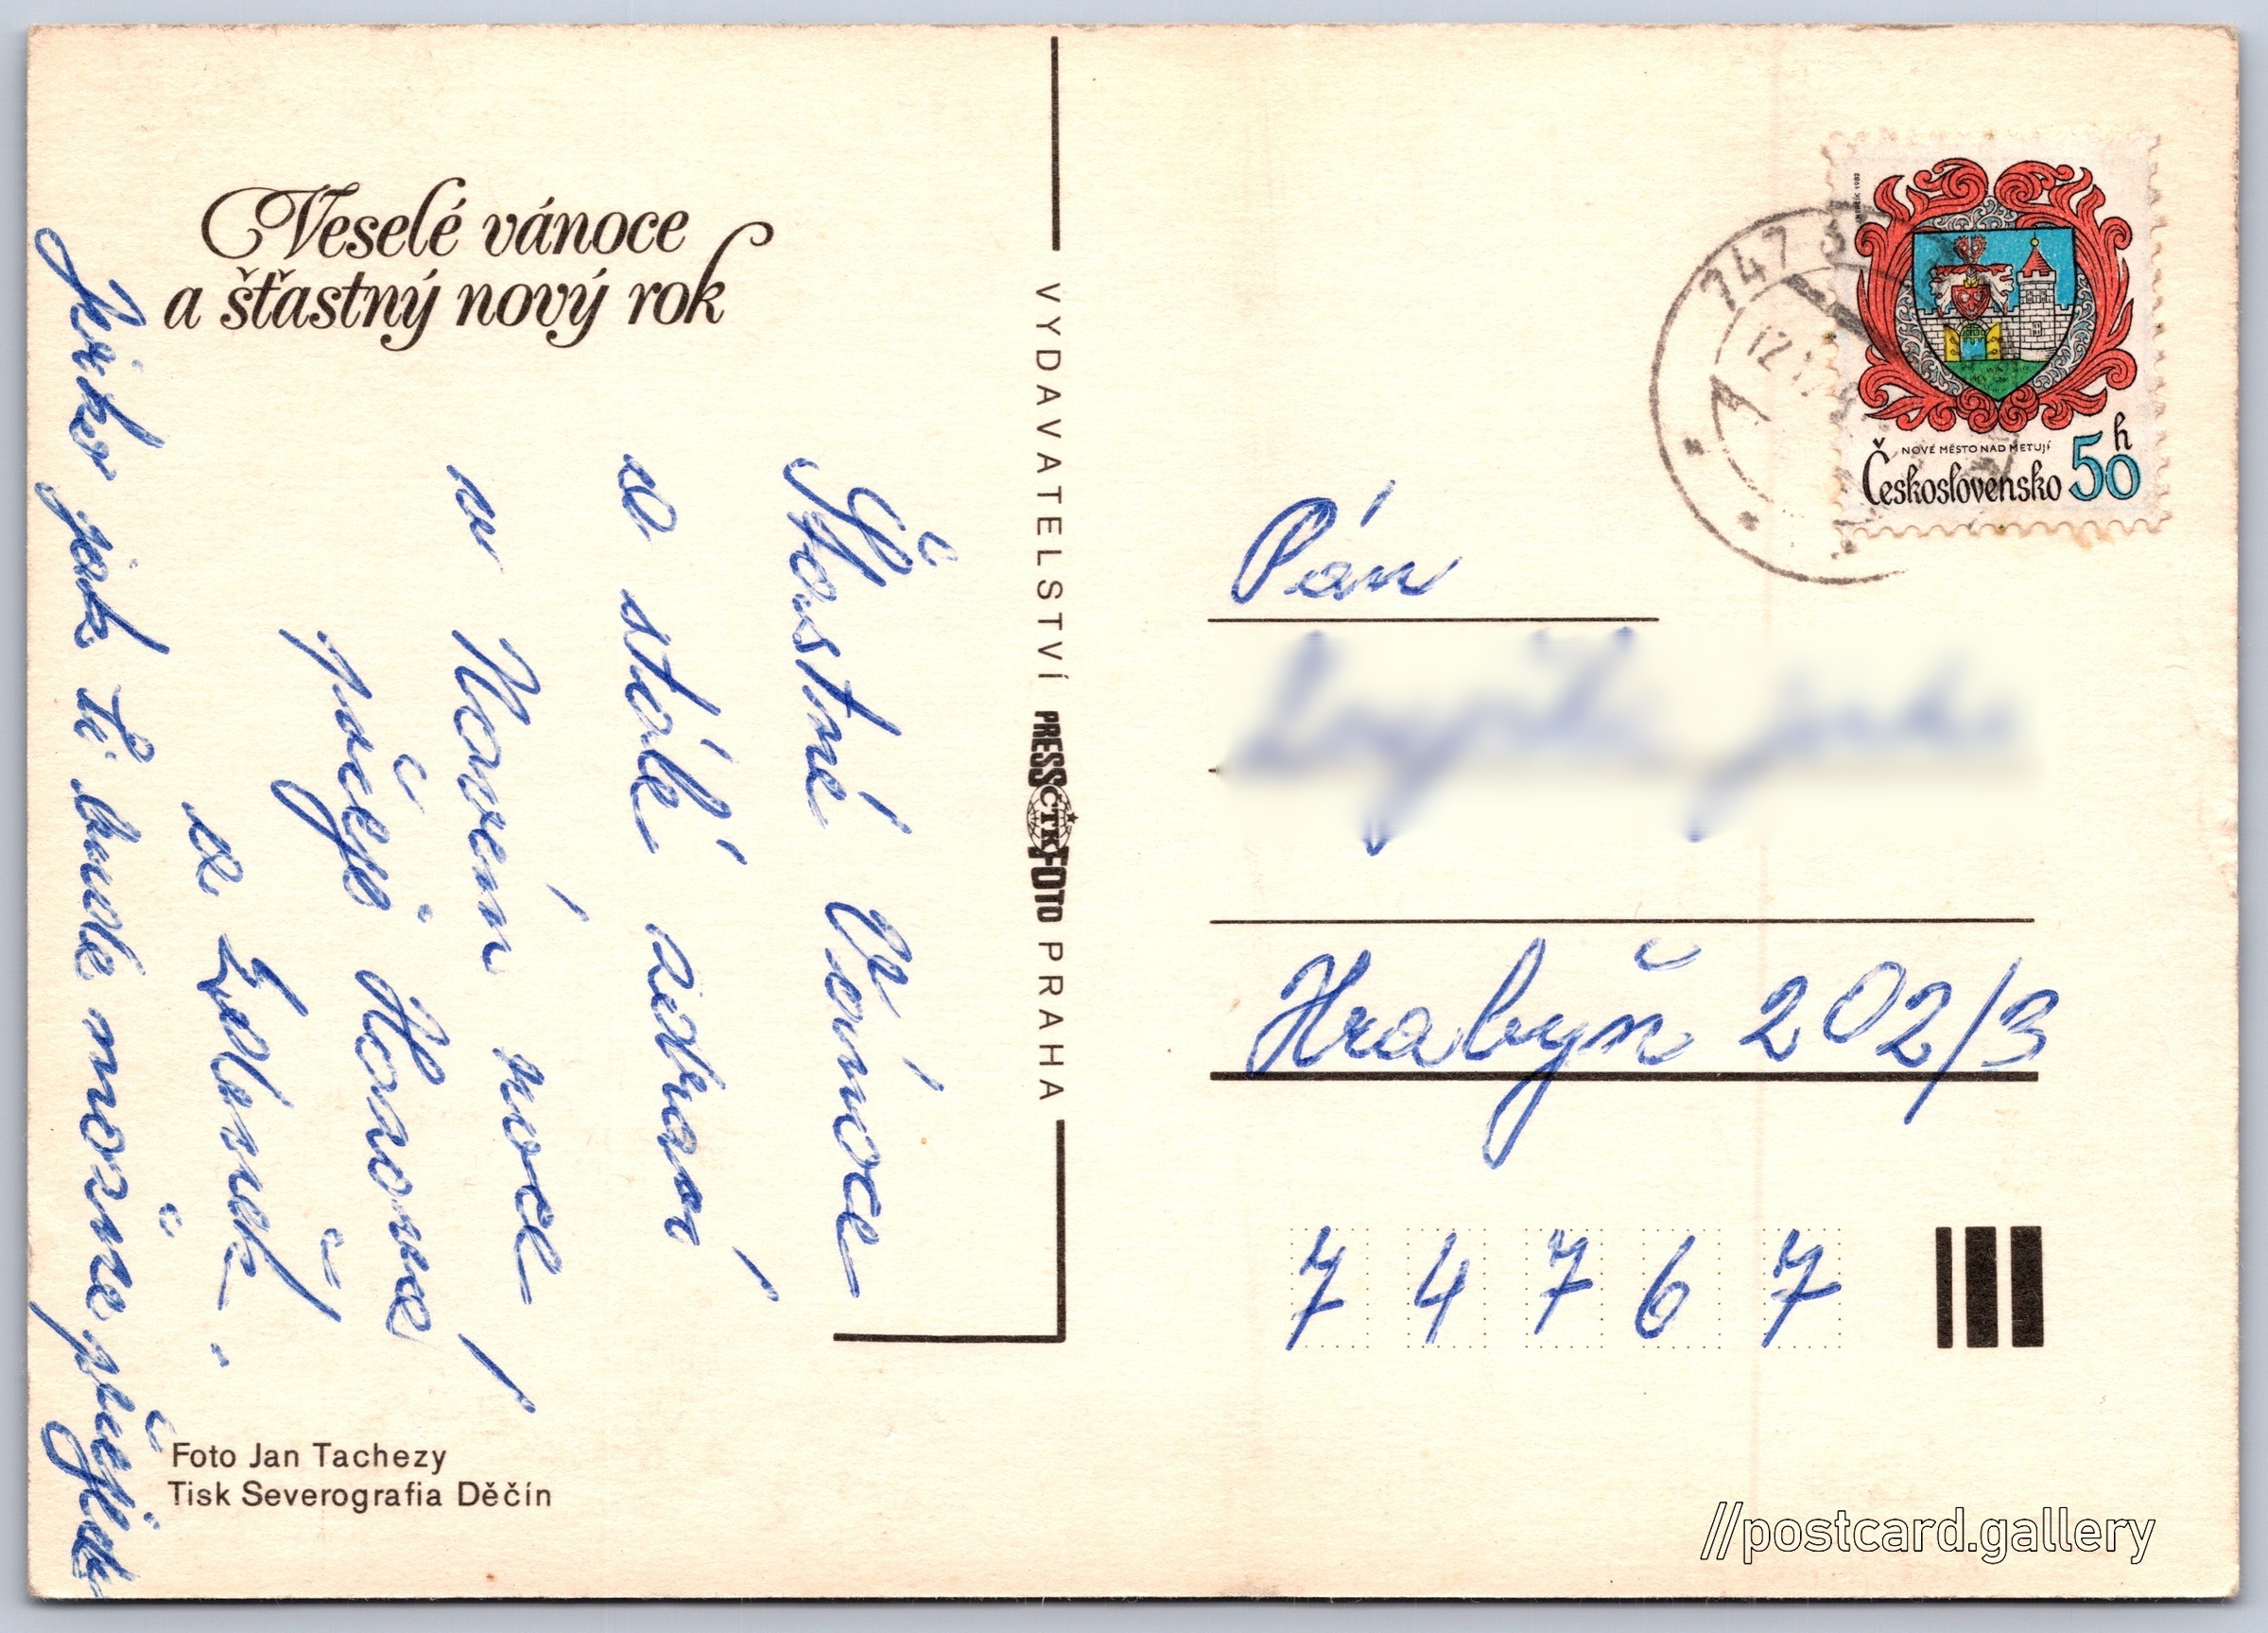 Veselé vánoce
a šťastný nový rok
Šťastné Vánoce
a stálé zdraví
v Novém roce
přeje Honové
a Zdeněk.
Jirko jak ti bude možno přijeď
Foto Jan Tachezy
Tisk Severografia Děčín
VYDAVATELSTVÍ PRESSFOTO PRAHA
ČTK
747
12
NOVÉ MĚSTO NAD METUJÍ
Československo 50 h
Pán
Hrabyň 202/3
7 4 7 6 7
//postcard.gallery